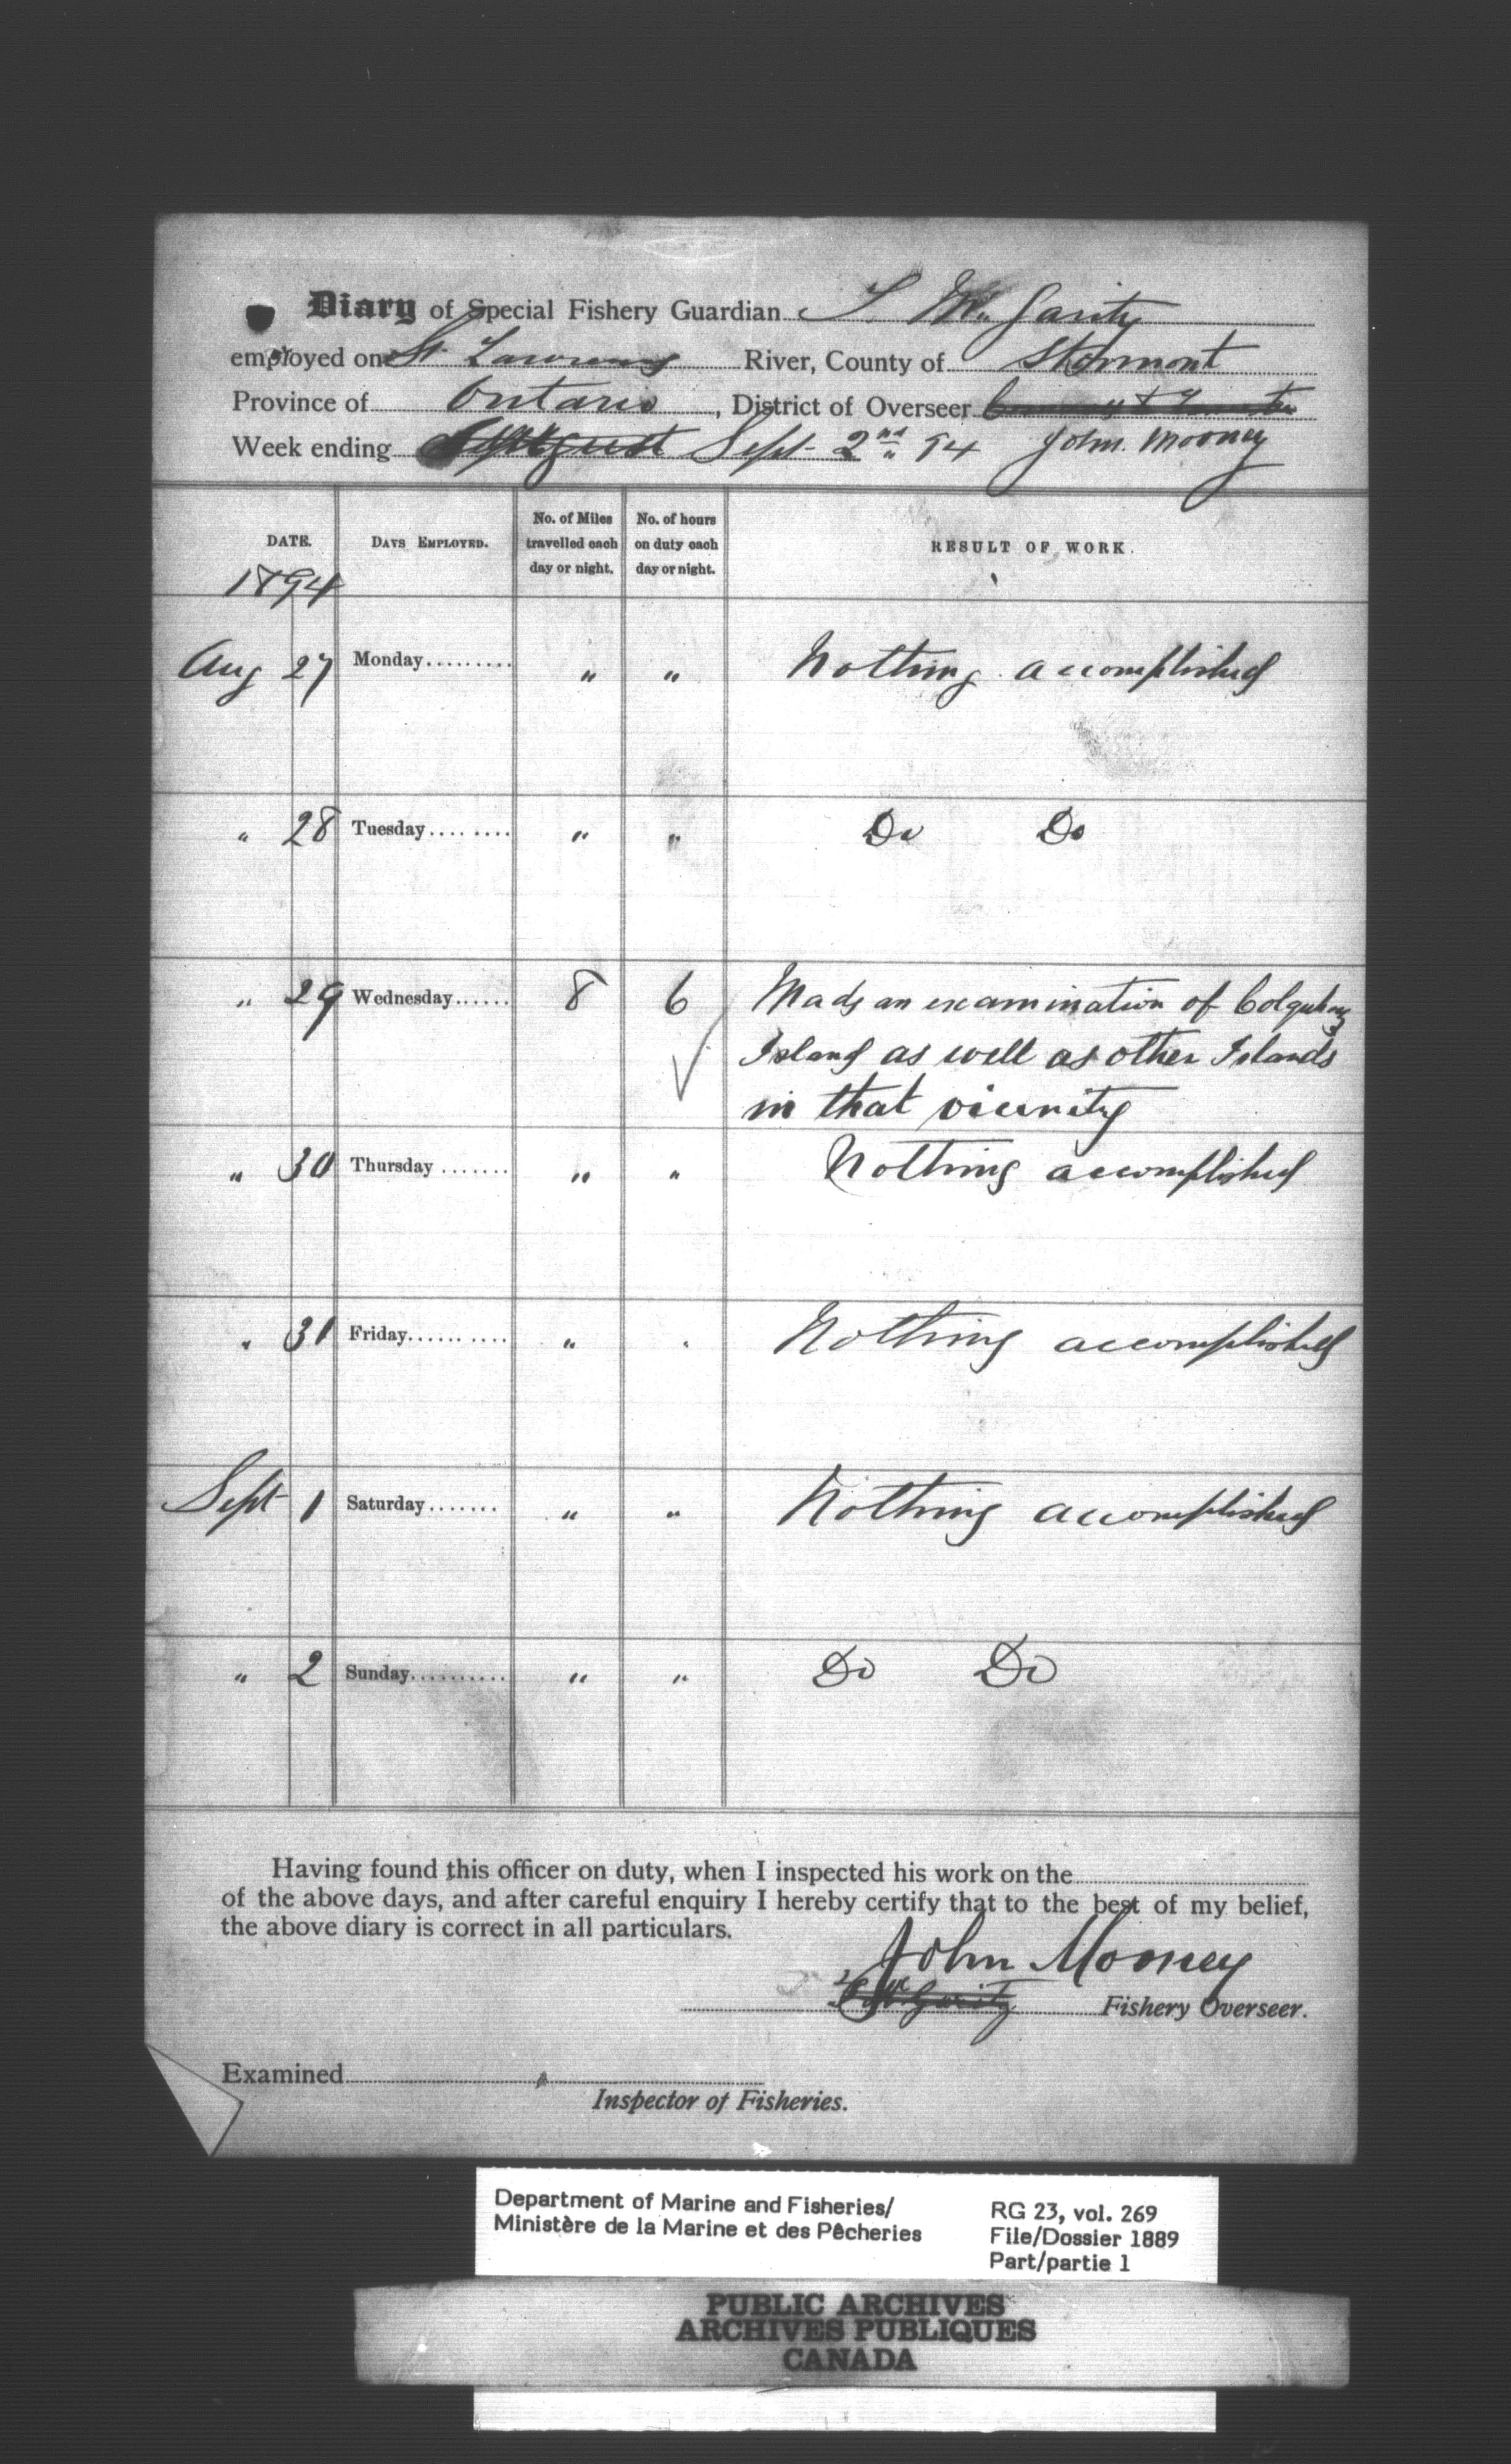 Diary of Special Fishery Guardian T. McGarity
employed on St. Lawrence River, County of Stormont
Province of Ontario, District of Overseer
Week ending Sept 2nd 94 John. Mooney
DATE. DAYS EMPLOYED. No. of Miles travelled each day or night. No. of hours on duty each day or night. RESULT OF WORK.
1894
Aug 27 Monday......... " " Nothing accomplished
" 28 Tuesday........ " " Do Do
" 29 Wednesday...... 8 6 Made an examination of Colquhouns
Island as well as other Islands
in that vicinity
" 30 Thursday....... " " Nothing accomplished
" 31 Friday.......... " " Nothing accomplished
Sept 1 Saturday....... " " Nothing accomplished
" 2 Sunday.......... " " Do Do
Having found this officer on duty, when I inspected his work on the
of the above days, and after careful enquiry I hereby certify that to the best of my belief,
the above diary is correct in all particulars.
John Mooney
Fishery Overseer.
Examined
Inspector of Fisheries.
Department of Marine and Fisheries/
Ministère de la Marine et des Pêcheries
RG 23, vol. 269
File/Dossier 1889
Part/partie 1
PUBLIC ARCHIVES
ARCHIVES PUBLIQUES
CANADA